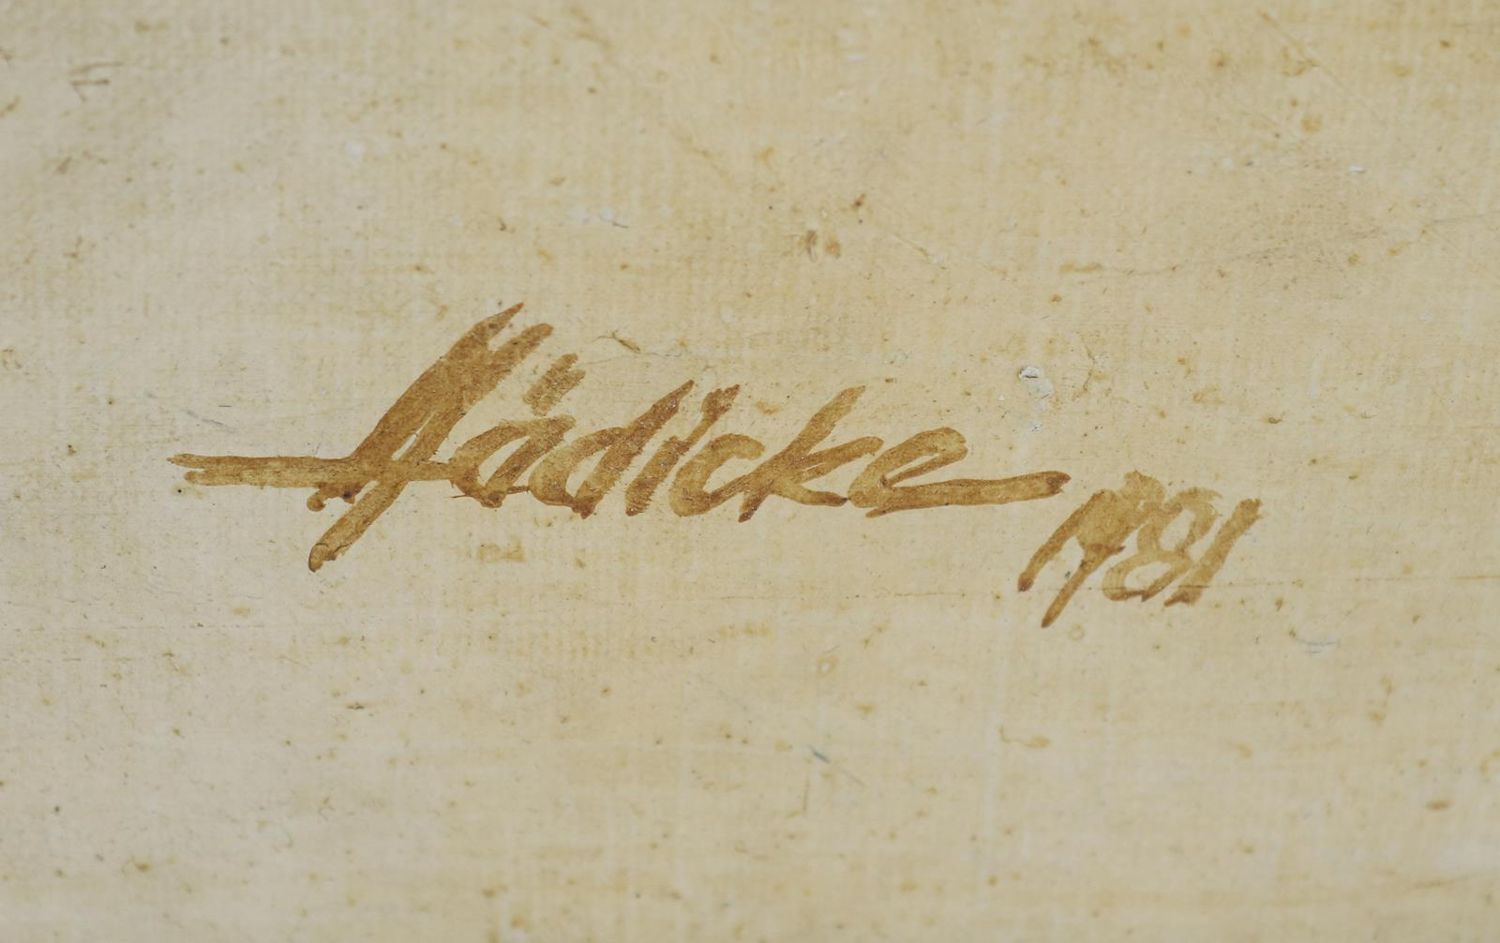 Hädicke 1981